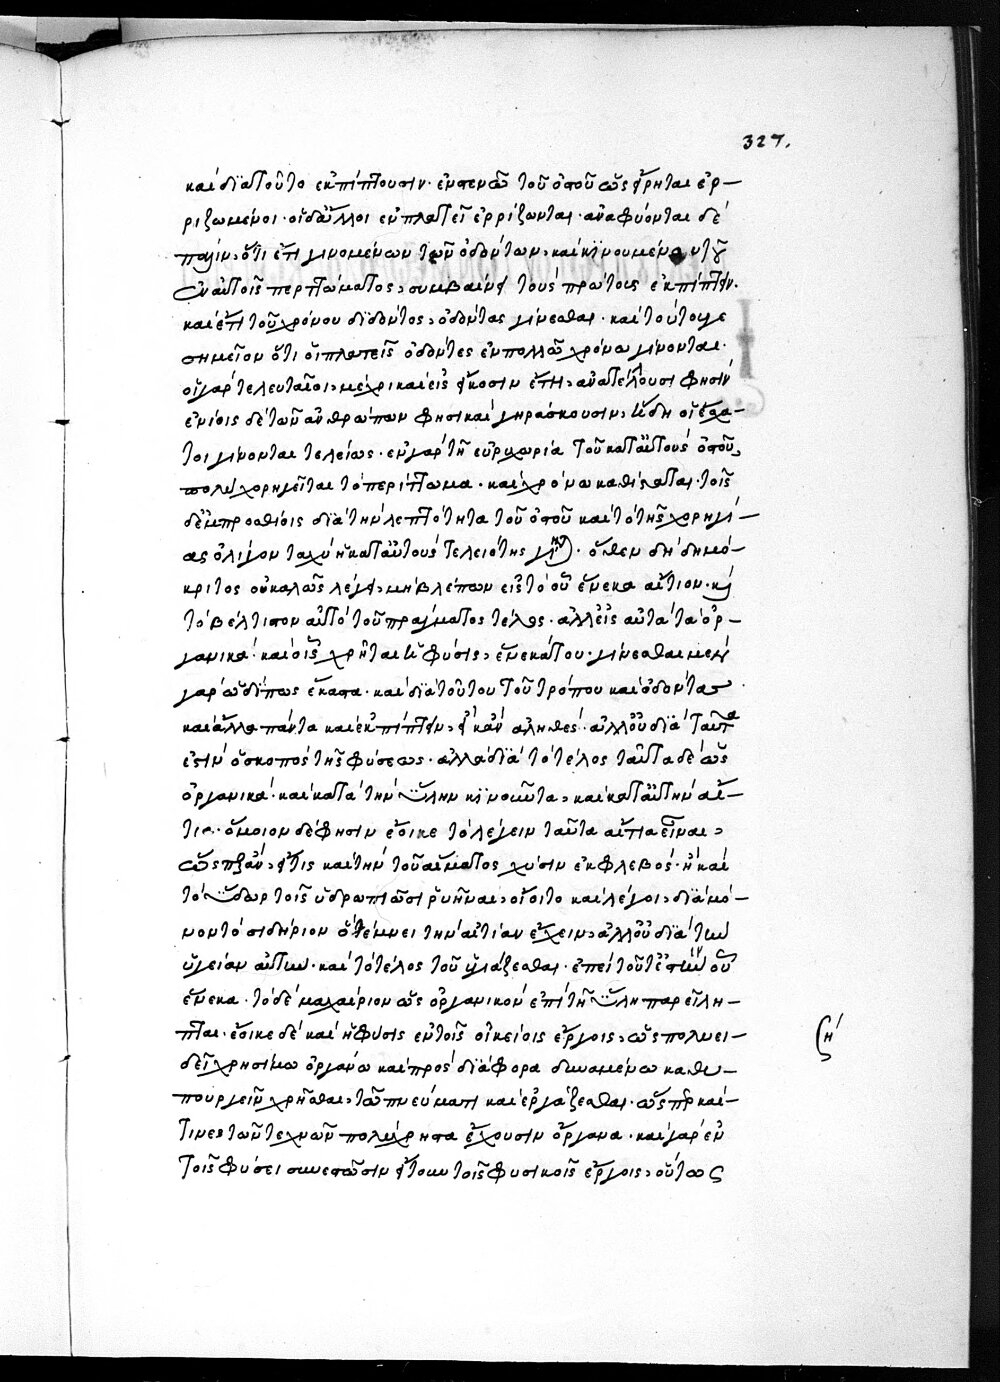 327.
καὶ διὰ τοῦτο ἐκπίπτουσιν· ἐν στενῷ τοῦ ὀστοῦ ὡς εἴρηται ἐρ–
ριζωμένοι· οἱ δ' ἄλλοι ἐν πλατεῖ ἐρρίζωνται· ἀναφύονται δὲ
πάλιν, ὅτι ἔτι γινομένων τῶν ὀδόντων, καὶ κινουμένου τοῦ
ἐν αὐτοῖς περιττώματος, συμβαίνει τοὺς πρώτους ἐκπίπτειν·
καὶ ἔτι τοῦ χρόνου διδόντος, ὀδόντας γίνεσθαι· καὶ τούτου γε
σημεῖον ὅτι οἱ πλατεῖς ὀδόντες ἐν πολλῷ χρόνῳ γίνονται·
οἱ γὰρ τελευταῖοι, μέχρι καὶ εἰς εἴκοσιν ἔτη, ἀνατέλλουσι φησὶν
ἐνίοις δὲ τῶν ἀνθρώπων φησὶ καὶ γηράσκουσιν, ἤδη οἱ ἔσχα–
τοι γίνονται τελείως· ἐν γὰρ τῇ εὐρυχωρίᾳ τοῦ κατ' αὐτοὺς ὀστοῦ,
πολὺ χορηγεῖται τὸ περίττωμα· καὶ χρόνῳ καθίσταται· τοῖς
δ' ἐμπροσθίοις διὰ τὴν λεπτότητα τοῦ ὀστοῦ καὶ τὸ τῆς χορηγί–
ας ὀλίγον ταχὺ ἡ κατ' αὐτοὺς τελειότης · ὅθεν δὴ δημό–
κριτος οὐ καλῶς λέγει, μὴ βλέπων εἰς τὸ οὗ ἕνεκα αἴτιον· καὶ
τὸ βέλτιστον αὐτὸ τοῦ πράγματος τέλος· ἀλλ' εἰς αὐτὰ τὰ ὀρ–
γανικά· καὶ οἷς χρῆται ἡ φύσις, ἕνεκά του· γίνεσθαι μὲν
γὰρ ὡδίπως ἕκαστα· καὶ διὰ τούτου τοῦ τρόπου καὶ ὀδόντας
καὶ ἄλλα πάντα καὶ ἐκπίπτειν, εἰκὰν ἀληθές· ἀλλ' οὐ διὰ ταῦτα
ἐστὶν ὁ σκοπὸς τῆς φύσεως· ἀλλὰ διὰ τὸ τέλος ταῦτα δὲ ὡς
ὀργανικά· καὶ κατὰ τὴν ὕλην κινοῦντα, καὶ κατ' αὐτὴν αἴ–
τια· ὅμοιον δὲ φησὶν ἔοικε τὸ λέγειν ταῦτα αἴτια εἶναι,
ὥσπερ ἂν, εἴ τις καὶ τὴν τοῦ αἵματος χύσιν ἐκ φλεβός· ἢ καὶ
τὸ ὕδωρ τοῖς ὑδρωπιῶσι ῥυῆναι, οἴοιτο καὶ λέγοι, διὰ μό–
νον τὸ σιδήριον ὃ τέμνει τὴν αἰτίαν ἔχειν, ἀλλ' οὐ διὰ τὴν
ὑγείαν αὐτῶν· καὶ τὸ τέλος τοῦ ὑγιάζεσθαι· ἐπεὶ τοῦτ' ἐστὶν οὗ
ἕνεκα· τὸ δὲ μαχαίριον ὡς ὀργανικὸν ἐπὶ τῇ ὕλῃ παρείλη–
πται· ἔοικε δὲ καὶ ἡ φύσις ἐν τοῖς οἰκείοις ἔργοις, ὡς πολυει–
δεῖ χρησίμῳ ὀργάνῳ καὶ πρὸς διάφορα δυναμένῳ καθυ–
πουργεῖν χρῆσθαι, τῷ πνεύματι καὶ ἐργάζεσθαι· ὥσπερ καί
τινες τῶν τεχνῶν πολύχρηστα ἔχουσιν ὄργανα· καὶ γὰρ ἐν
τοῖς φύσει συνεστῶσιν ἤτουν τοῖς φυσικοῖς ἔργοις, οὕτως